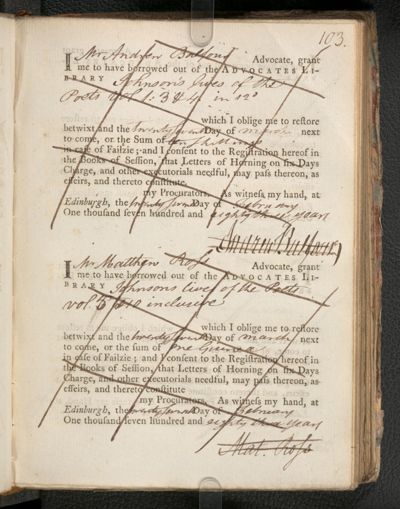 103.
I Mr Andrew Balfour Advocate, grant
me to have borrowed out of the ADVOCATES LI-
BRARY Johnson's lives of the
Poets vol 1: 3 & 4 in 12º
which I oblige me to reſtore
betwixt and the twenty Day of march next
to come, or the Sum of ten Shillings
in caſe of Failzie; and I conſent to the Regiſtration hereof in
the Books of Seſſion, that Letters of Horning on ſix Days
Charge, and other executorials needful, may paſs thereon, as
effeirs, and thereto conſtitute
my Procurators. As witneſs my hand, at
Edinburgh, the twenty Day of February
One thouſand ſeven hundred and eighty three years
Andrew Balfour
I Mr Matthew Roſs Advocate, grant
me to have borrowed out of the ADVOCATES LI-
BRARY Johnsons lives of the Poets
vol 5 inclusive
which I oblige me to reſtore
betwixt and the twenty Day of march next
to come, or the ſum of one Guinea
in caſe of Failzie; and I conſent to the Regiſtration hereof in
the Books of Seſſion, that Letters of Horning on ſix Days
Charge, and other executorials needful, may paſs thereon, as
effeirs, and thereto conſtitute
my Procurators. As witneſs my hand, at
Edinburgh, the twenty Day of February
One thouſand ſeven hundred and eighty three years
Mat. Roſs